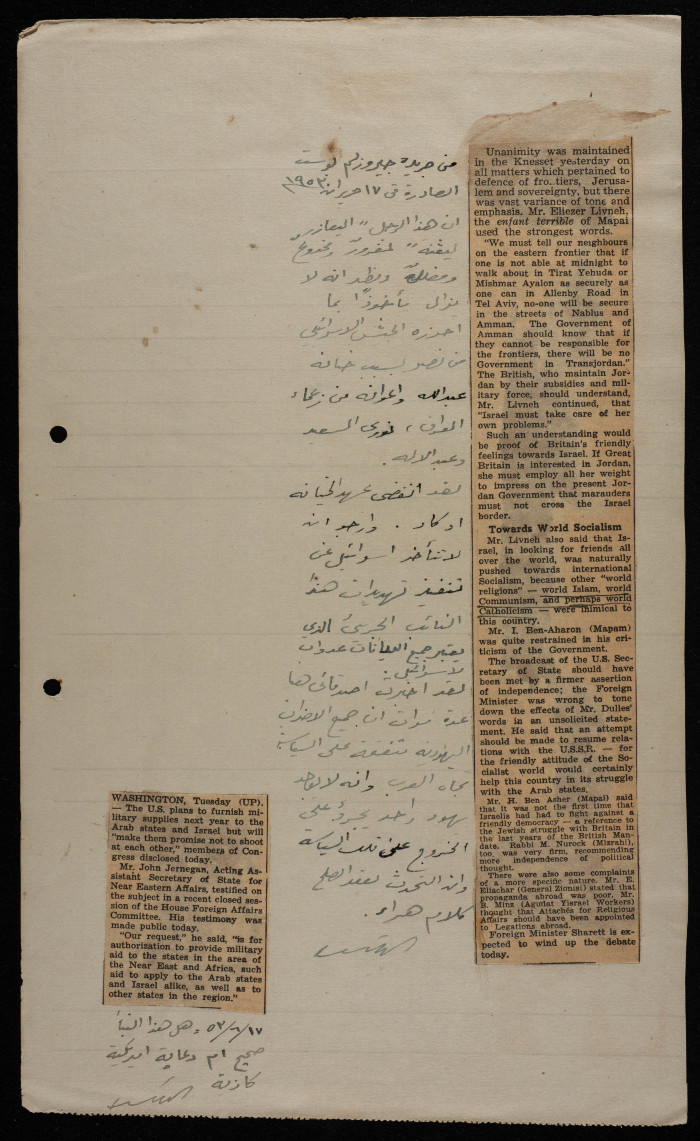 من جريدة جيروزلم بوست
الصادرة في ١٧ حزيران ١٩٥٣
ان هذا الرجل "اليعازر
ليفنه" لمغرور ومخدوع
ومضلل ويظهر انه لا
يزال مأخوذًا بما
احرزه الجيش الاسرائيلي
من نصر بسبب خيانة
عبدالله واعوانه من زعماء
العراق، نوري السعيد
وعبد الاله.
لقد انقضى عهد الخيانة
او كاد. وارجو ان
لا تتأخر اسرائيل عن
تنفيذ تهديدات هذا
النائب الجريء الذي
يعتبر جميع الديانات عدوات
لاسرائيل
لقد اخبرت اصدقائي هنا
عدة مرات ان جميع الاحزاب
اليهودية متفقة على السياسة
تجاه العرب وانه لا يوجد
يهودي واحد يجرؤ على
الخروج على تلك السياسة
وان التحدث بعقد الصلح
كلام هراء.
Unanimity was maintained
in the Knesset yesterday on
all matters which pertained to
defence of frontiers, Jerusa-
lem and sovereignty, but there
was vast variance of tone and
emphasis. Mr. Eliezer Livneh,
the enfant terrible of Mapai
used the strongest words.
"We must tell our neighbours
on the eastern frontier that if
one is not able at midnight to
walk about in Tirat Yehuda or
Mishmar Ayalon as securely as
one can in Allenby Road in
Tel Aviv, no-one will be secure
in the streets of Nablus and
Amman. The Government of
Amman should know that if
they cannot be responsible for
the frontiers, there will be no
Government in Transjordan."
The British, who maintain Jor-
dan by their subsidies and mil-
itary force, should understand,
Mr. Livneh continued, that
"Israel must take care of her
own problems."
Such an understanding would
be proof of Britain's friendly
feelings towards Israel. If Great
Britain is interested in Jordan,
she must employ all her weight
to impress on the present Jor-
dan Government that marauders
must not cross the Israel
border.
Towards World Socialism
Mr. Livneh also said that Is-
rael, in looking for friends all
over the world, was naturally
pushed towards international
Socialism, because other "world
religions" — world Islam, world
Communism, and perhaps world
Catholicism — were inimical to
this country.
Mr. I. Ben-Aharon (Mapam)
was quite restrained in his cri-
ticism of the Government.
The broadcast of the U.S. Sec-
retary of State should have
been met by a firmer assertion
of independence; the Foreign
Minister was wrong to tone
down the effects of Mr. Dulles'
words in an unsolicited state-
ment. He said that an attempt
should be made to resume rela-
tions with the U.S.S.R. — for
the friendly attitude of the So-
cialist world would certainly
help this country in its struggle
with the Arab states.
Mr. H. Ben Asher (Mapai) said
that it was not the first time that
Israelis had had to fight against a
friendly democracy — a reference to
the Jewish struggle with Britain in
the last years of the British Man-
date. Rabbi M. Nurock (Mizrahi),
too, was very firm, recommending
more independence of political
thought.
There were also some complaints
of a more specific nature. Mr. E.
Eliachar (General Zionist) stated that
propaganda abroad was poor. Mr.
B. Mintz (Agudat Yisrael Workers)
thought that Attachés for Religious
Affairs should have been appointed
to Legations abroad.
Foreign Minister Sharett is ex-
pected to wind up the debate
today.
WASHINGTON, Tuesday (UP).
— The U.S. plans to furnish mi-
litary supplies next year to the
Arab states and Israel but will
"make them promise not to shoot
at each other," members of Con-
gress disclosed today.
Mr. John Jernegan, Acting As-
sistant Secretary of State for
Near Eastern Affairs, testified on
the subject in a recent closed ses-
sion of the House Foreign Affairs
Committee. His testimony was
made public today.
"Our request," he said, "is for
authorization to provide military
aid to the states in the area of
the Near East and Africa, such
aid to apply to the Arab states
and Israel alike, as well as to
other states in the region."
٥٣/٦/١٧ وهل هذا النبأ
صحيح ام دعاية اميركية
كاذبة